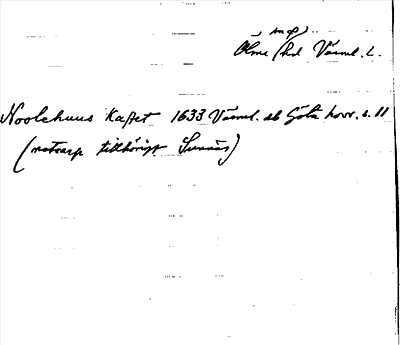 Ölme hd Värml. L.
Noolehuus Kastet 1633 Värml. db Göta hovr. s. 11
( tillhörigt Sunnäs)